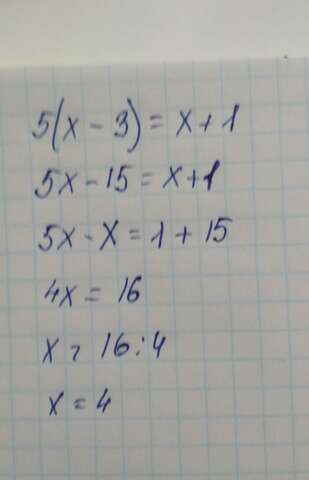 5(x - 3) = x + 1
5x - 15 = x + 1
5x - x = 1 + 15
4x = 16
x = 16 : 4
x = 4